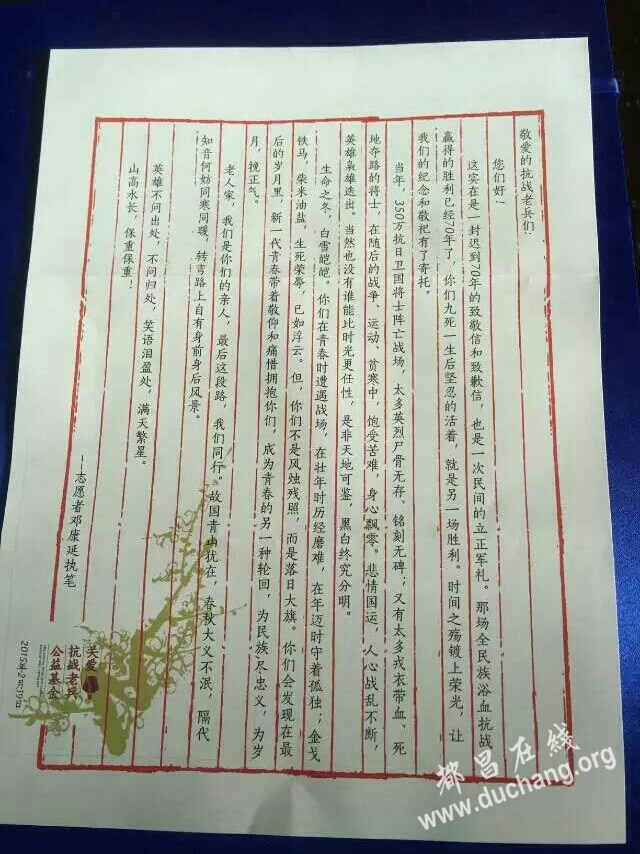 敬爱的抗战老兵们：
您们好！
这实在是一封迟到70年的致敬信和致歉信，也是一次民间的立正军礼。那场全民族浴血抗战
赢得的胜利已经70年了，你们九死一生后坚忍的活着，就是另一场胜利。时间之殇镀上荣光，让
我们的纪念和敬祀有了寄托。
当年，350万抗日卫国将士阵亡战场，太多英烈尸骨无存、铭刻无碑；又有太多戎衣带血、死
地夺路的将士，在随后的战争、运动、贫寒中，饱受苦难，身心飘零。悲情国运，人心战乱不断，
英雄枭雄迭出。当然也没有谁能比时光更任性，是非天地可鉴，黑白终究分明。
生命之冬，白雪皑皑。你们在青春时遭遇战场，在壮年时历经磨难，在年迈时守着孤独；金戈
铁马，柴米油盐，生死荣辱，已如浮云。但，你们不是风烛残照，而是落日大旗。你们会发现在最
后的岁月里，新一代青春带着敬仰和痛惜拥抱你们，成为青春的另一种轮回，为民族尽忠义，为岁
月，挽正气。
老人家，我们是你们的亲人，最后这段路，我们同行。故国青山犹在，春秋大义不泯，隔代
知音何妨同寒同暖，转弯路上自有身前身后风景。
英雄不问出处，不问归处，笑语泪盈处，满天繁星。
山高水长，保重保重！
--志愿者邓康延执笔
关爱
抗战老兵
公益基金
2015年2月19日
都昌在线
www.duchang.org